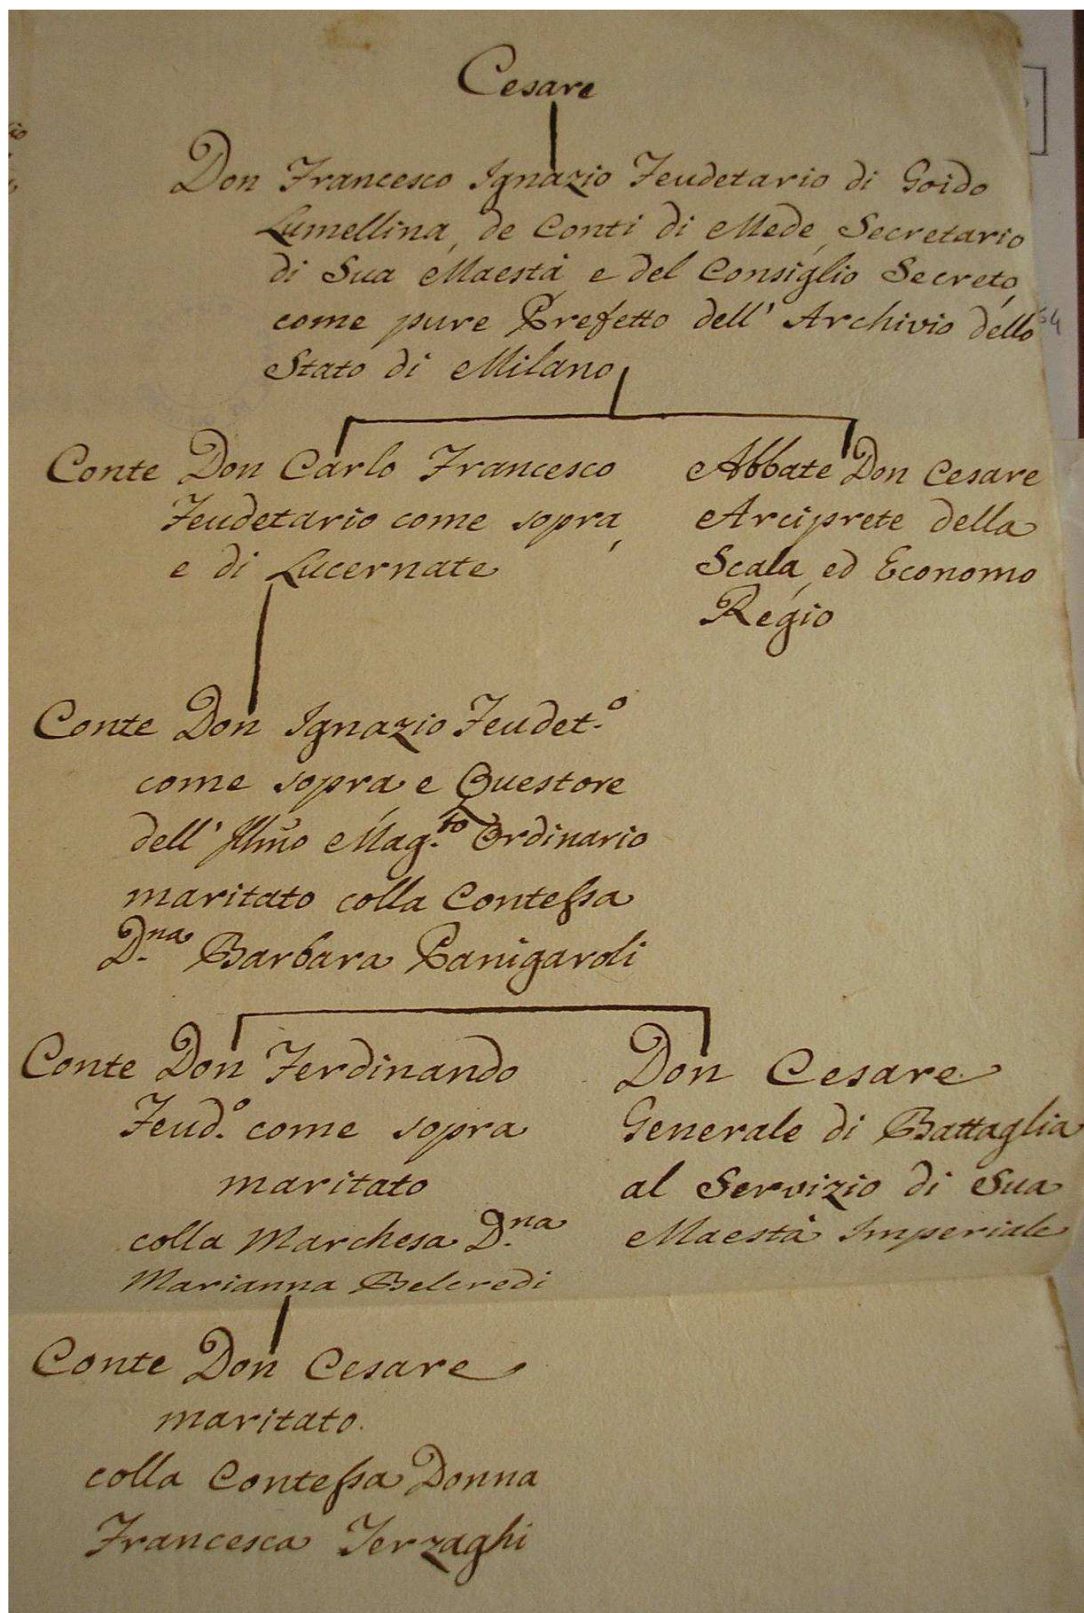 Cesare
Don Francesco Ignazio Feudetario di Goido
Lumellina, de Conti di Mede, Secretario
di Sua Maestà, e del Consiglio Secreto,
come pure Prefetto dell' Archivio dello
Stato di Milano
Conte Don Carlo Francesco
Feudetario come sopra,
e di Lucernate
Abbate Don Cesare
Arciprete della
Scala, ed Economo
Regio
Conte Don Ignazio Feudet.º
come sopra, e Questore
dell' Illm̃o Mag.to Ordinario
maritato colla Contessa
D.na Barbara Panigaroli
Conte Don Ferdinando
Feud.º come sopra
maritato
colla Marchesa D.na
Marianna Belcredi
Don Cesare
Generale di Battaglia
al Servizio di Sua
Maestà Imperiale
Conte Don Cesare
maritato
colla Contessa Donna
Francesca Terzaghi